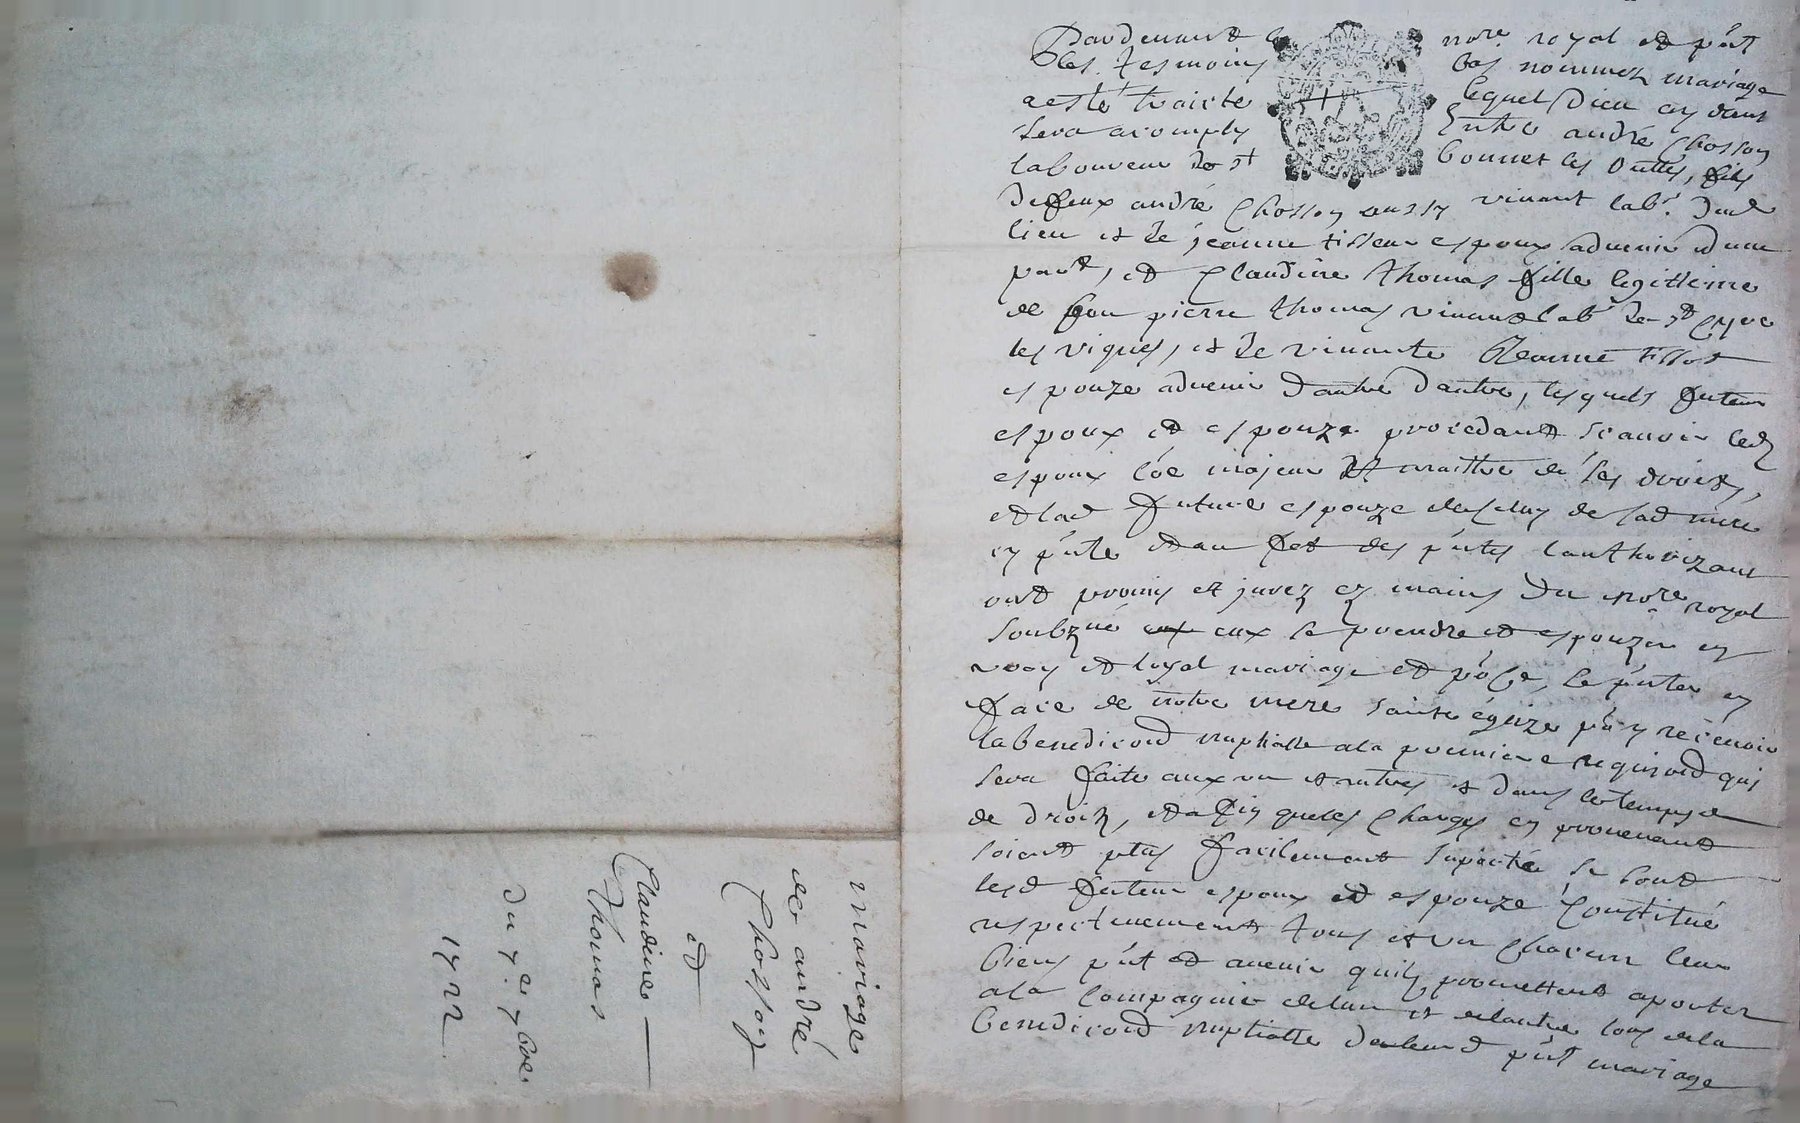 Pardevant le nore. royal et p'nt
les tesmoins bas nommez mariage
a esté traicté lequel Dieu aydant
sera acomply Entre andré Chosson
laboureur de st bonnet les oulles, fils
de feux andré Chosson aussy vivant labr. dud
lieu et de jeanne tisseur espoux advenir dune
part, et Claudine thomas fille legittime
de feu pierre thomas vivant labr de st Cyre
les vignes, et de vivante Jeanne tissot
espouze advenir dautre dautre, lesquels futeur
espoux et espouze procedant scavoir led
espoux coe majeur et maittre de ses droits,
et lad future espouze de celuy de sad mere
cy p'nte et au fet des p'ntes lauthorizant
ont promis et jurez ez mains du nore royal
soubzné eux se prendre et espouzer en
vray et loyal mariage et po' ce, se p'nter en
face de notre mere sainte églize p'r y recevoir
la benediction nuptialle a la premiere requisition qui
sera faite aux un et autres et dans le temps
de droit, et afin que les charges en provenant
soient plus facilement suportée se sont
lesd futeur espoux et espouze Constitué
respectivement tous et un chacun leur
biens p'nt et avenir quils promettent aporter
a la Compagnie de lun et de lautre lors de la
benediction nuptialle dud p'nt mariage
mariage
de andré
Chosson
et
Claudine
Thomas
du 7e. 7bre
1722